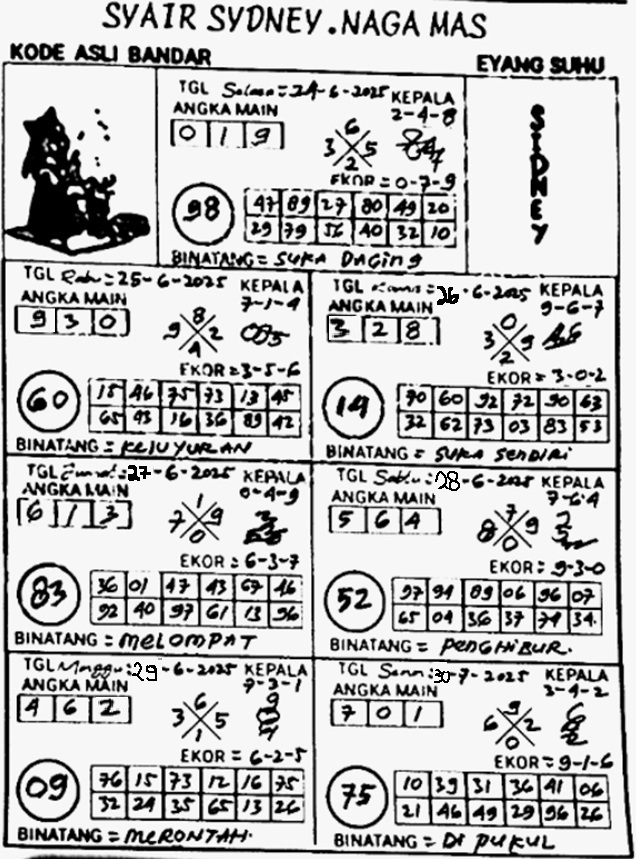 SYAIR SYDNEY.NAGA MAS
KODE ASLI BANDAR
EYANG SUHU
TGL Selasa=24-6-2025 KEPALA
ANGKA MAIN 2-4-8
0 1 9
6
3 5
2
EKOR=0-7-9
98
47 89 27 80 49 20
29 79 56 40 32 10
BINATANG=SUKA DAGING
SIDNEY
TGL Rabu=25-6-2025 KEPALA
ANGKA MAIN 7-1-4
9 3 0
8
9 2
4
EKOR=3-5-6
60
15 46 75 73 13 45
65 93 16 36 89 42
BINATANG=KELUYURAN
TGL Kamis=26-6-2025 KEPALA
ANGKA MAIN 9-6-7
3 2 8
0
3 9
2
EKOR=3-0-2
14
90 60 92 72 90 63
32 62 73 03 83 53
BINATANG=SUKA SENDIRI
TGL Jumat:27-6-2025 KEPALA
ANGKA MAIN 0-4-9
6 1 3
1
7 9
0
EKOR:6-3-7
83
36 01 47 43 67 46
92 40 97 61 13 96
BINATANG=MELOMPAT
TGL Sabtu:28-6-2025 KEPALA
ANGKA MAIN 7-6-4
5 6 4
7
8 9
0
EKOR:9-3-0
52
97 94 89 06 96 07
65 04 36 37 74 34
BINATANG=PENGHIBUR.
TGL Minggu:29-6-2025 KEPALA
ANGKA MAIN 7-3-1
4 6 2
6
3 5
1
EKOR=6-2-5
09
76 15 73 12 16 75
32 24 35 65 13 26
BINATANG=MERONTAH.
TGL Senin:30-7-2025 KEPALA
ANGKA MAIN 3-4-2
7 0 1
9
6 2
0
EKOR:9-1-6
75
10 39 31 36 41 06
21 46 49 29 96 26
BINATANG=DI PUKUL